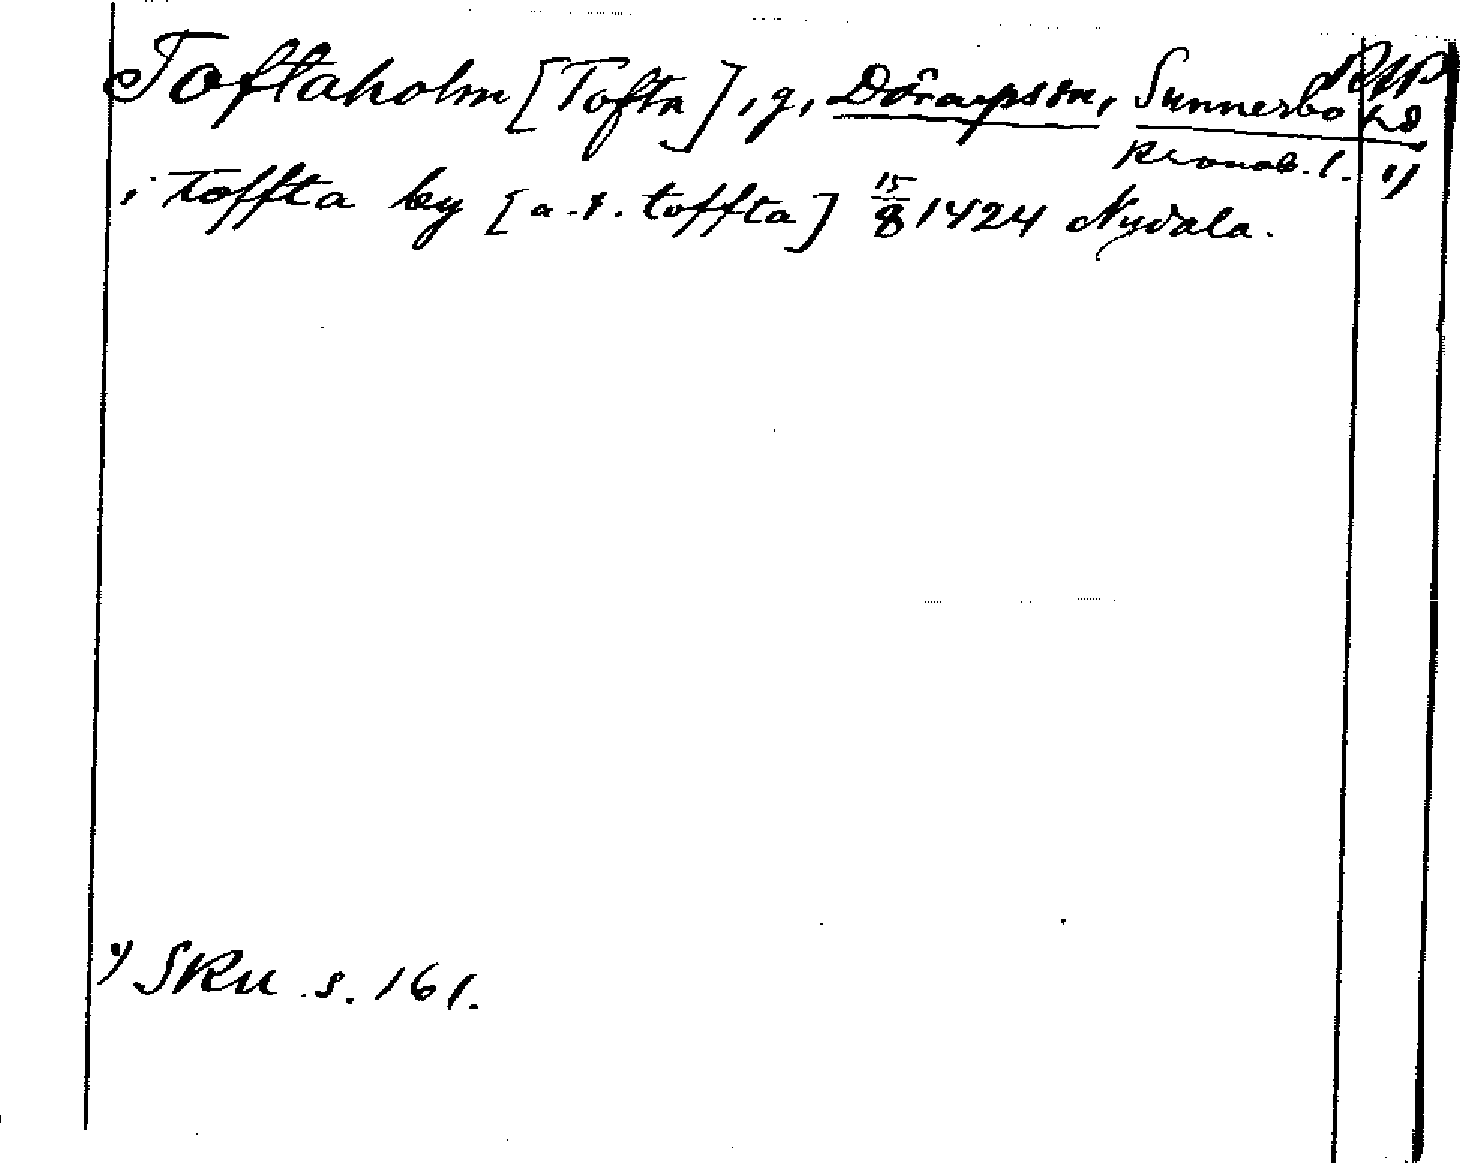 RAP
Toftaholm [Tofta], g, Dörarpssn, Sunnerbo hd
Kronob. l. 1)
i toffta by [a. s. toffta] 15/8 1424 Nydala.
1) SRU s. 161.